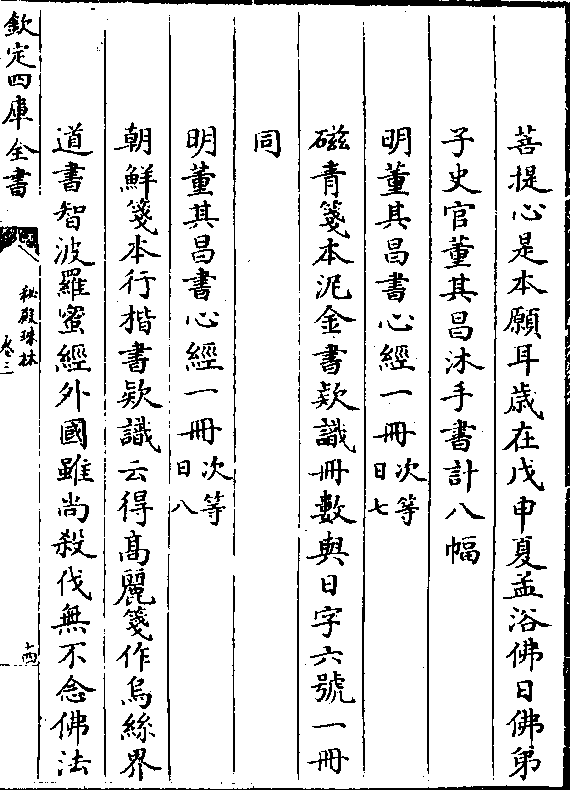 菩提心是本願耳歳在戊申夏孟浴佛日佛弟
子史官董其昌沐手書計八幅
明董其昌書心經一冊次等日七
磁青箋本泥金書款識冊數與日字六號一冊
同
明董其昌書心經一冊次等日八
朝鮮箋本行楷書款識云得髙麗箋作烏絲界
道書智波羅蜜經外國雖尚殺伐無不念佛法
欽定四庫全書
秘殿珠林
卷三
十四